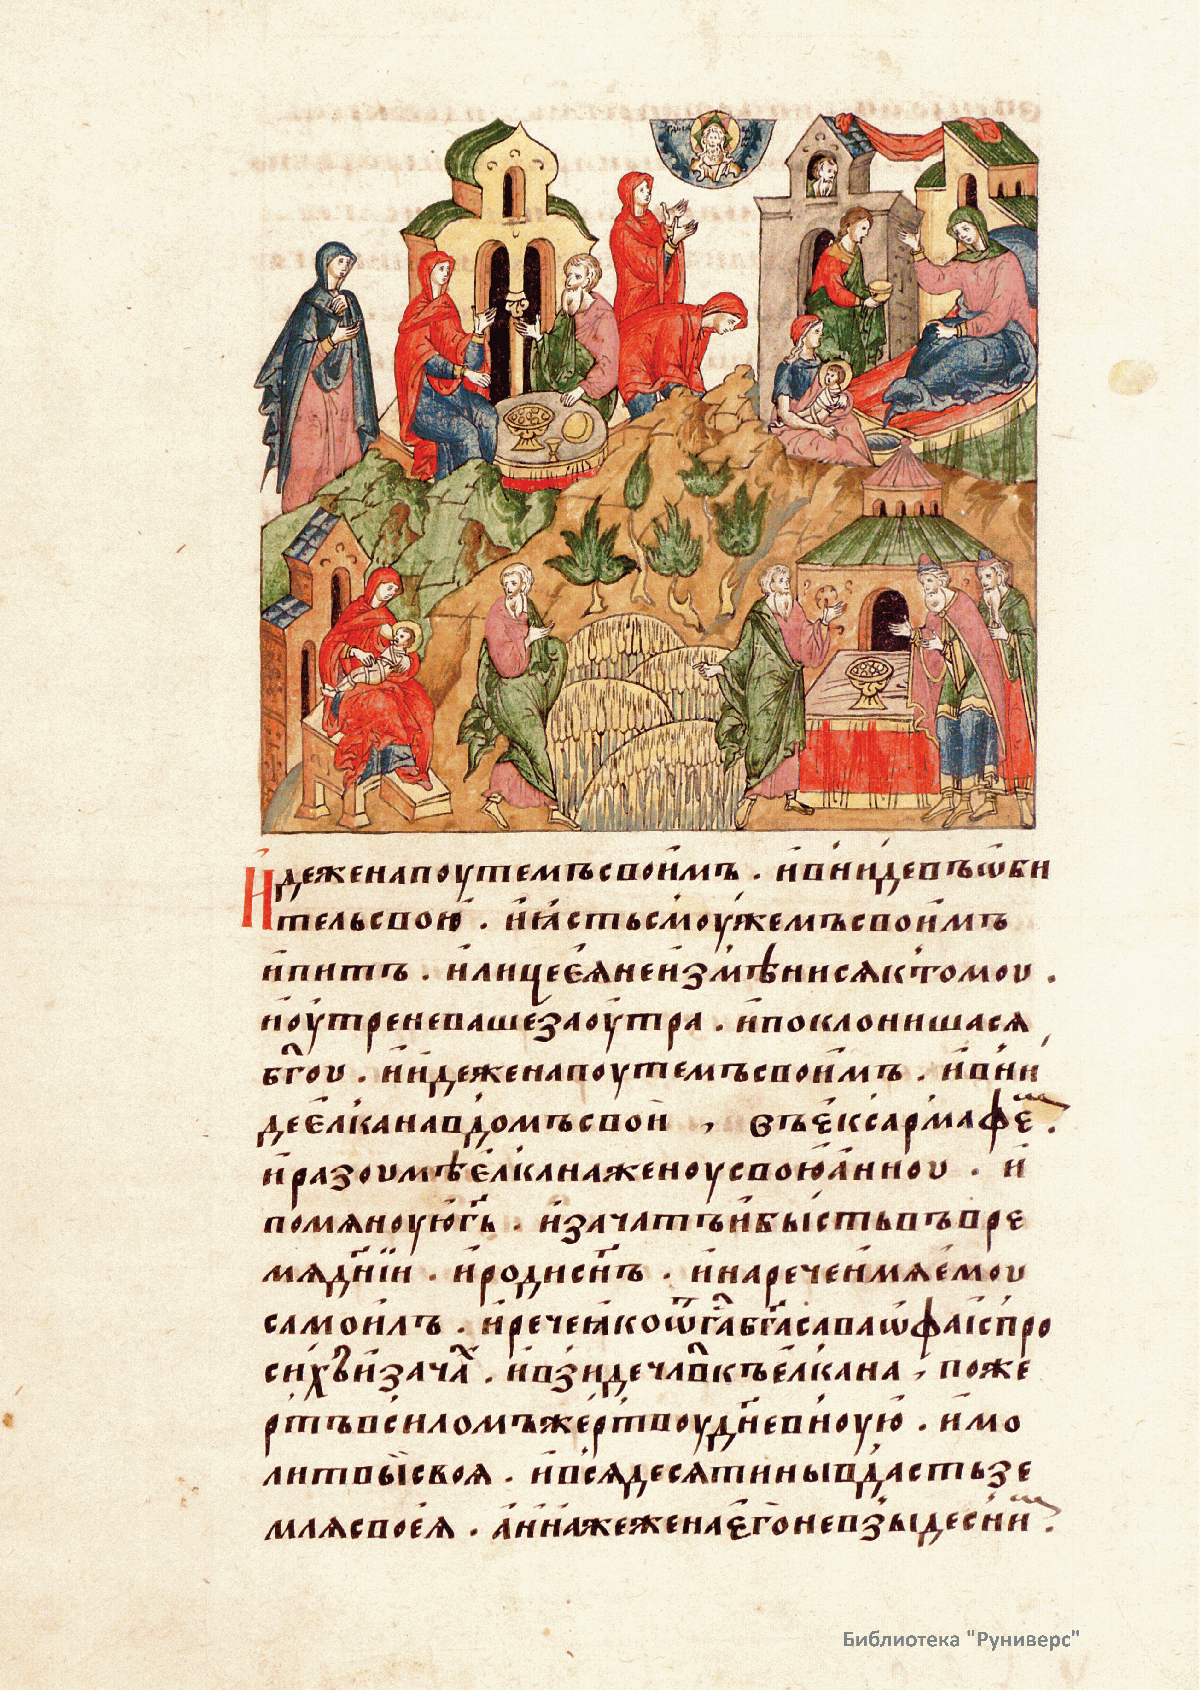 И҆деженапоутемъсвои́мъ . и҆вни́иде́въѡби
тельсвою̀ . и҆ꙗ҆стьсмоу́жемъсвои́мъ
и҆питъ . и҆лицееѧ̀неи҆змѣни́сѧктомоу .
и҆оу́треневашезаоу́тра . и҆поклонишасѧ
бг҃оу . и҆и҆деженапоутемъсвои́мъ . и҆вни́и
дее҆лканавдомъсвои , ѿъе҆ксармафе́м .
и҆разоумѣе҆лканаженоусвою̀а҆нноу . и҆
помѧноую̀гь҃ . и҆зачатъи҆бы́стьвъвре
мѧдн҃їи . и҆родисн҃ъ . и҆наречеи҆мѧе҆моу
самои́лъ . и҆речеꙗ҆коѿга҃бг҃асаваѡ́фаи҆спро
си́хъи҆зача́х . и҆взы́идечл҃вкъе҆лкана , поже
ртъвси́ломъже́ртвоудн҃евноую̀ . и҆мо
литвы̀своѧ . и҆всѧ̀десѧтинывда́стьзе
млѧсвоеѧ̀ . а҆ннажеженае҆го̀невзы́десни́м .
Библиотека "Руниверс"